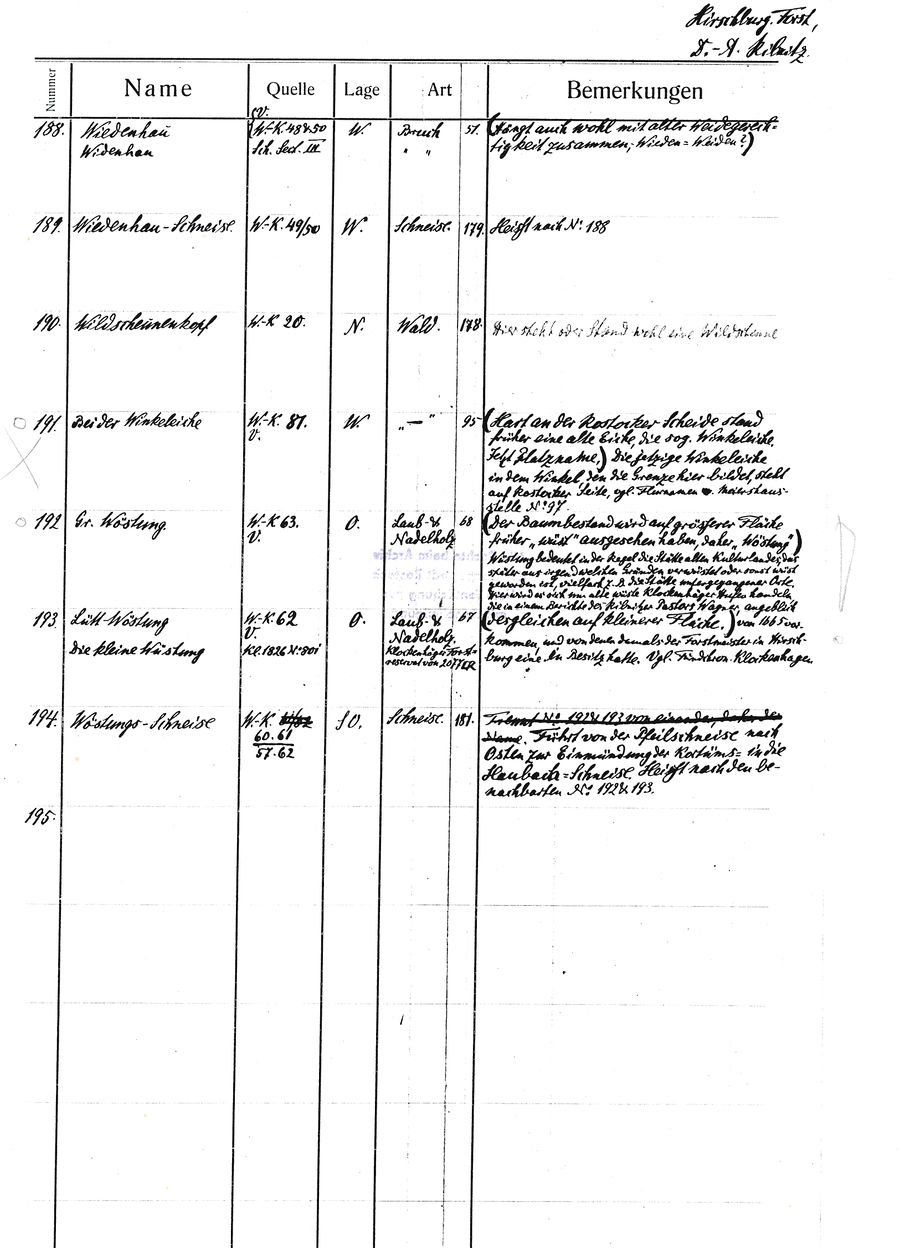 Hirschburg. Forst,
D.-A. Ribnitz.
Nummer Name Quelle Lage Art Bemerkungen
V.
188. Wiedenhau W.-K. 48 & 50 W. Bruch 51. (Hängt auch wohl mit alter Weidegerech-
Widenhau Sch. Sect. III " " tigkeit zusammen; Wieden = Weiden?)
189. Wiedenhau-Schneise. W.-K. 49/50 W. Schneise. 179. Heißt nach N: 188
190. Wildscheunenkopf W.-K 20. N. Wald. 178. Hier steht oder Stand wohl eine Wildscheune
191. Bei der Winkeleiche W.-K. 81. W. „ — " 95 (Hart an der Rostocker Scheide stand
V. früher eine alte Eiche, die sog. Winkeleiche.
Jetzt Platzname.) Die jetzige Winkeleiche
in dem Winkel, den die Grenze hier bildet, steht
auf Rostocker Seite, vgl. Flurnamen Meiershaus-
stelle N: 97
192 Gr. Wöstung W.-K 63. O. Laub- & 68 (Der Baumbestand wird auf grösserer Fläche
V. Nadelholz früher „wüst" ausgesehen haben, daher „Wöstung")
Wüstung bedeutet in der Regel die Stätte alten Kulturlandes, das
später aus irgend welchen Gründen verwüstet oder sonst wüst
geworden ist, vielfach z. B. die Stätte untergegangener Orte.
Hier wird es sich um alte wüste Klockenhäger Hufen handeln,
die in einem Berichte des Ribnitzer Pastors Wagner, angeblich
193 Lütt-Wöstung W.-K 62 O. Laub- & 67 (desgleichen auf kleinerer Fläche.) von 1665 vor-
V. Nadelholz. kommen, und von denen damals der Forstmeister in Hirsch-
Die kleine Wüstung Kl. 1826 N: 801 Klockenhäger Forst- burg eine in Besitz hatte. Vgl. Klockenhagen.
reserval von 2077 □R
194. Wöstungs-Schneise W.-K. 61/62 SO. Schneise. 181. Trennt N: 192 & 193 von einander, daher der
60. 61 Name. Führt von der Pfeilschneise nach
57. 62 Osten zur Einmündung der Kostüms= in die
Haubach=Schneise. Heißt nach den be-
nachbarten N: 192 & 193.
195.